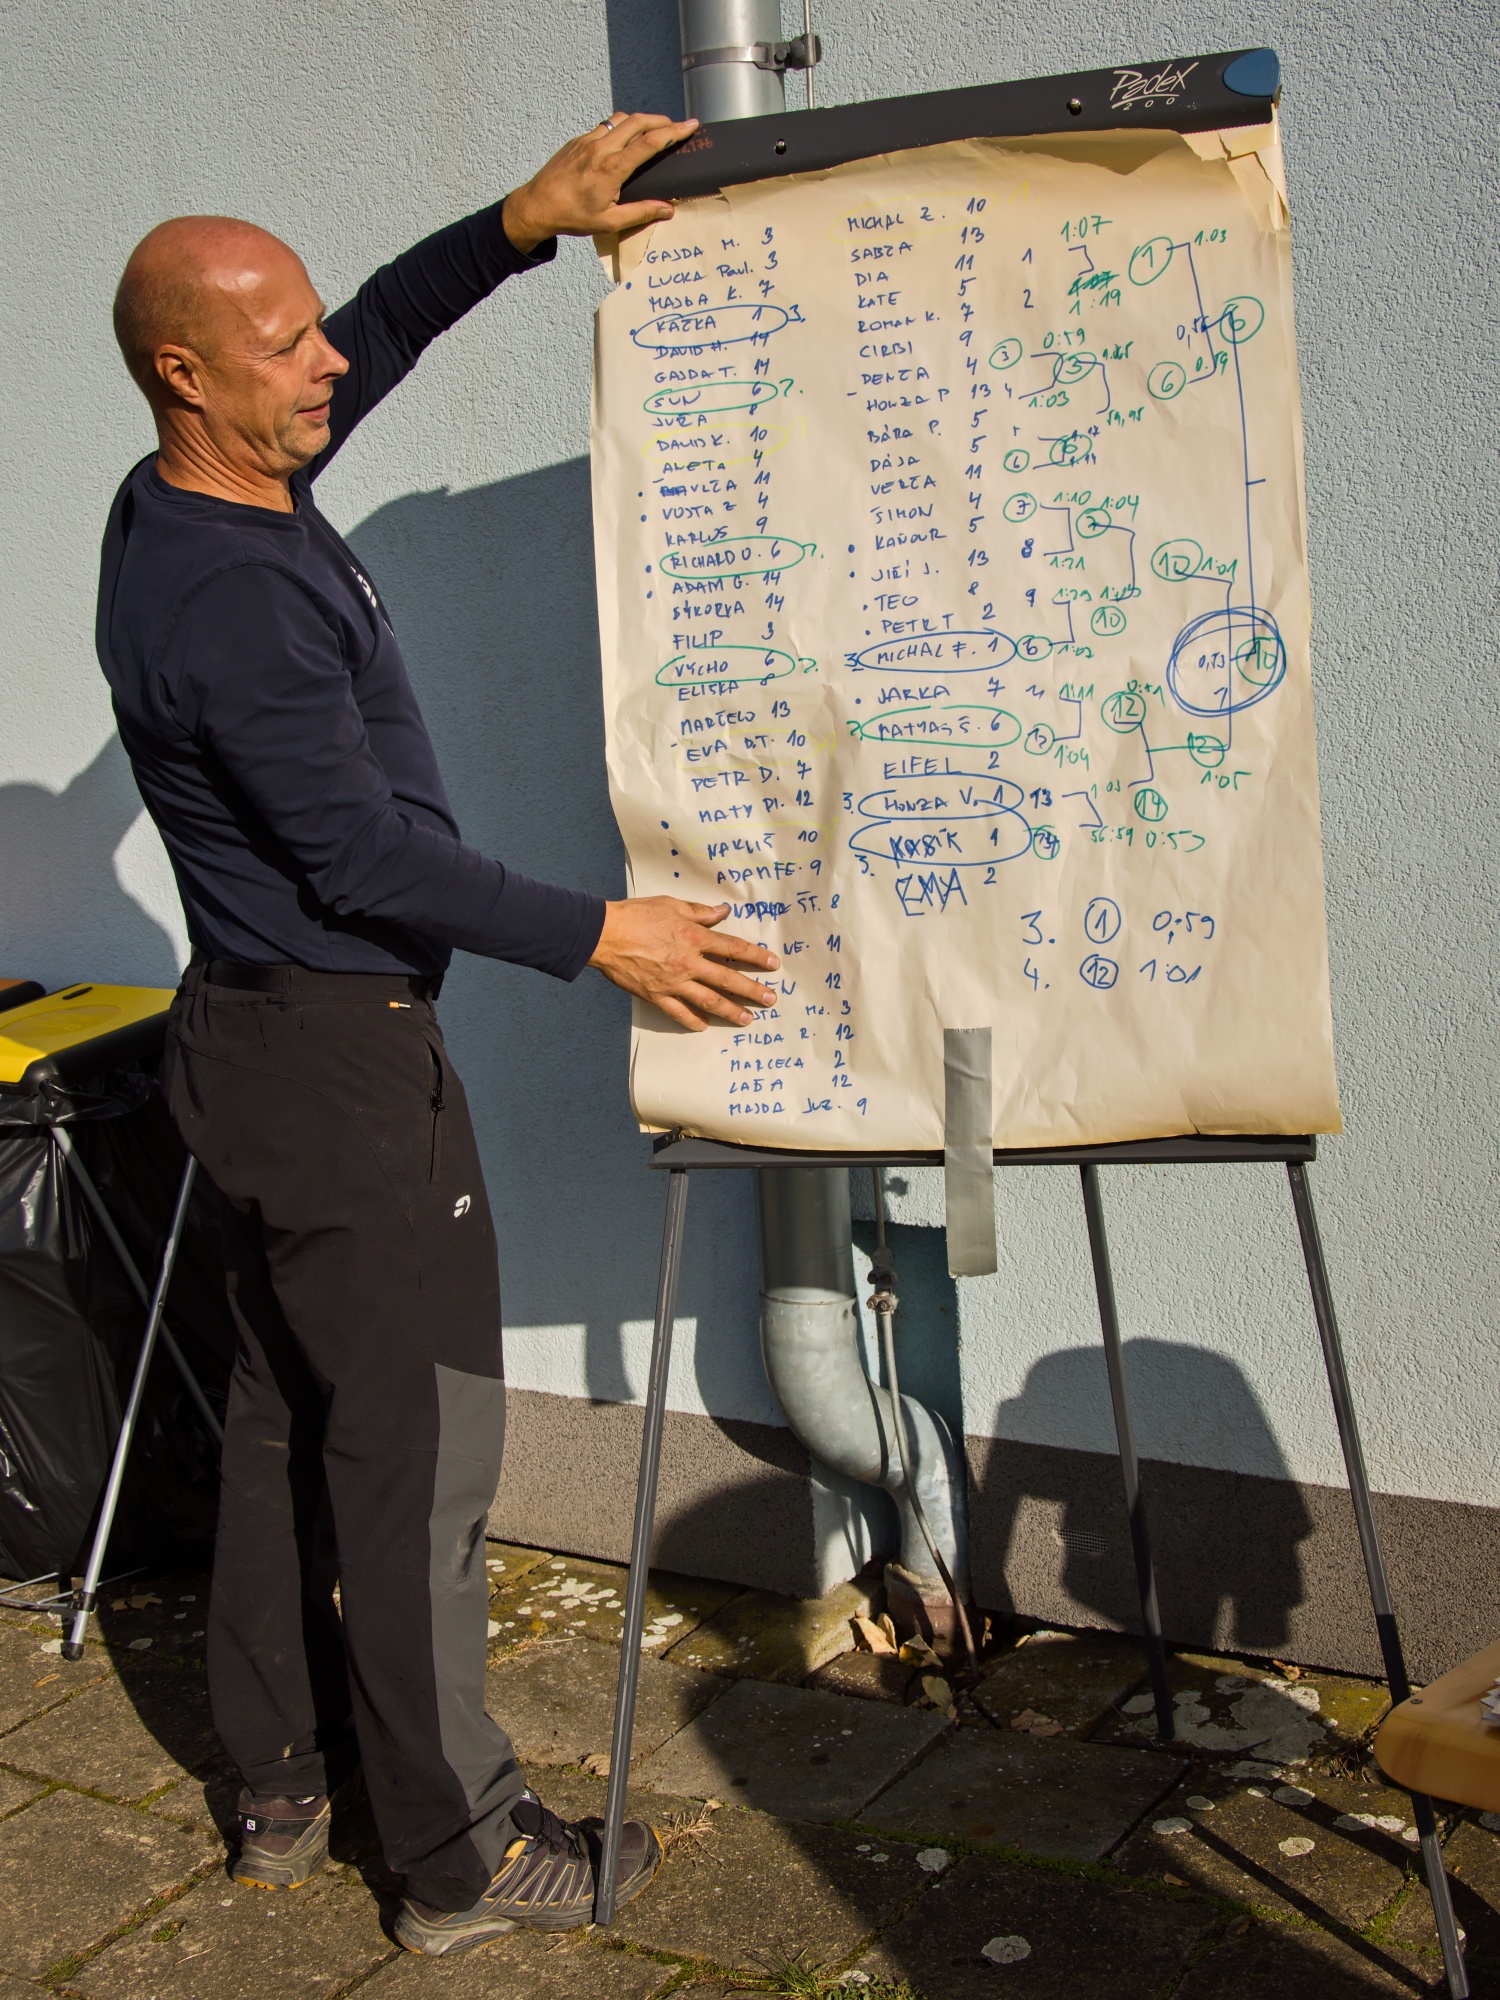 Padex
200
GAJDA M. 3
LUCKA Paul. 3
MAJDA K. 7
KAČKA 1 3.
DAVID H. 14
GAJDA T. 14
SUN 6 2.
JUŽA 8
DAVID K. 10
ANETA 4
VLČA 11
VOJTA Z 4
KARLOS 9
RICHARD U. 6 2.
ADAM G. 14
SÝKORKA 14
FILIP 3
VÝCHO 6 2.
ELIŠKA 8
MARCELO 13
EVA D.T. 10
PETR D. 7
MATY PI. 12
NAKLIČ 10
ADAM FE. 9
ŠT. 8
NE. 11
12
Ma. 3
FILDA R. 12
MARCELA 2
LAĎA 12
MAJDA JUZ. 9
MICHAL Z. 10
SABZA 13
DIA 11
KATE 5
ROMAN K. 7
CIRBI 9
DENČA 4
HONZA P 13
BÁRA P. 5
DÁJA 5
VERČA 11
ŠIMON 4
KAŇOUR 5
JIŘÍ J. 13
TEO 9
PETR T 2
3 MICHAL F. 1
JARKA 7
2 MATYÁŠ Š. 6
EIFEL 2
3. HONZA V. 1
3. KASÍK 1
EMA 2
1 1:07
2 1:19
3 0:59
4 1:03
3
6
7 1:10
8 1:21
9 1:29
1:02
1:11
12 1:04
13
0:53
7 1:04
10
12
14
1 1:03
6 0:59
10 1:01
12 1:05
6
10
0,53
1
3. 1 0,59
4. 12 1:01